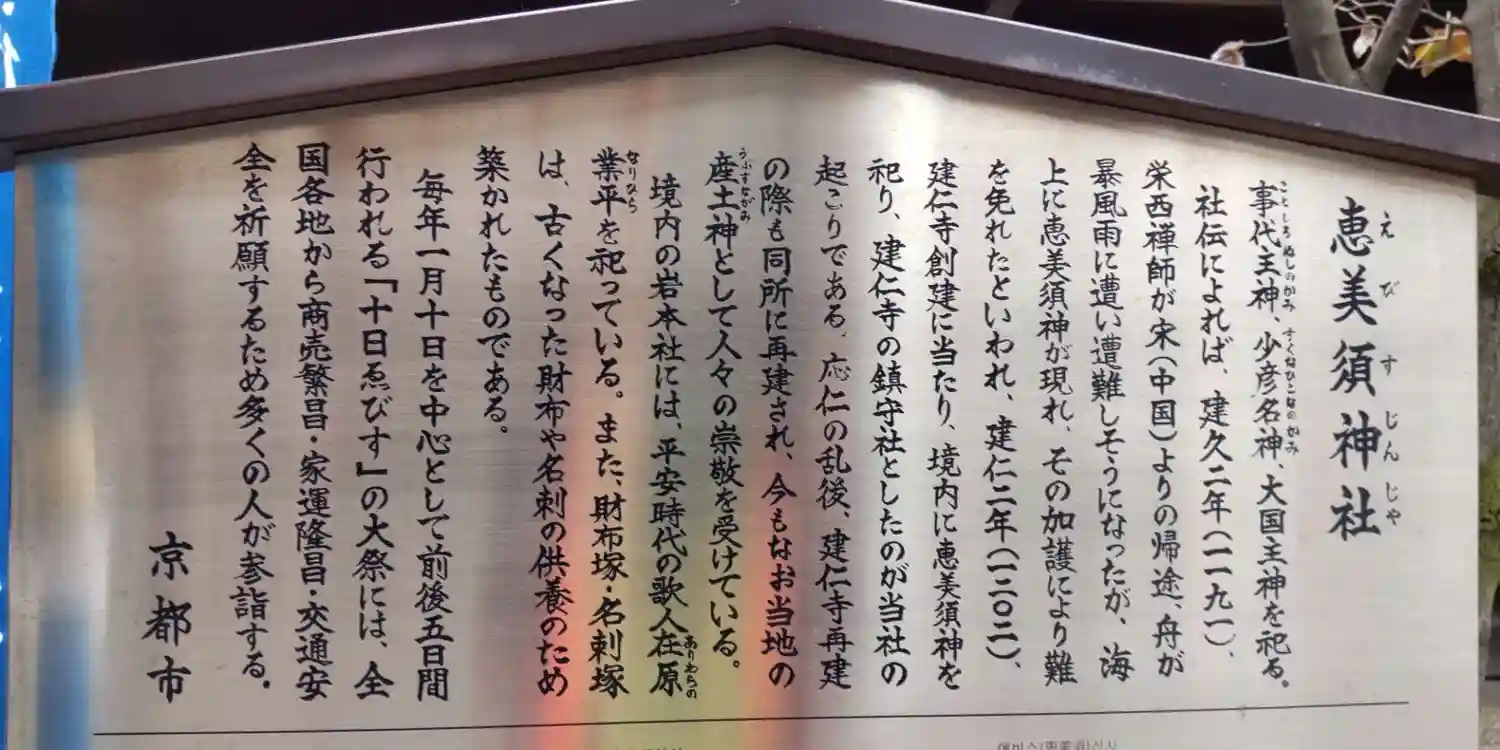 恵美須神社
えびすじんじゃ
事代主神、少彦名神、大国主神を祀る。
ことしろぬしのかみ すくなひこなのかみ
社伝によれば、建久二年(一一九一)、
栄西禅師が宋(中国)よりの帰途、舟が
暴風雨に遭い遭難しそうになったが、海
上に恵美須神が現れ、その加護により難
を免れたといわれ、建仁二年(一二〇二)、
建仁寺創建に当たり、境内に恵美須神を
祀り、建仁寺の鎮守社としたのが当社の
起こりである。応仁の乱後、建仁寺再建
の際も同所に再建され、今もなお当地の
産土神として人々の崇敬を受けている。
うぶすながみ
境内の岩本社には、平安時代の歌人在原
ありわらの
業平を祀っている。また、財布塚・名刺塚
なりひら
は、古くなった財布や名刺の供養のため
築かれたものである。
毎年一月十日を中心として前後五日間
行われる「十日ゑびす」の大祭には、全
国各地から商売繁昌・家運隆昌・交通安
全を祈願するため多くの人が参詣する。
京都市